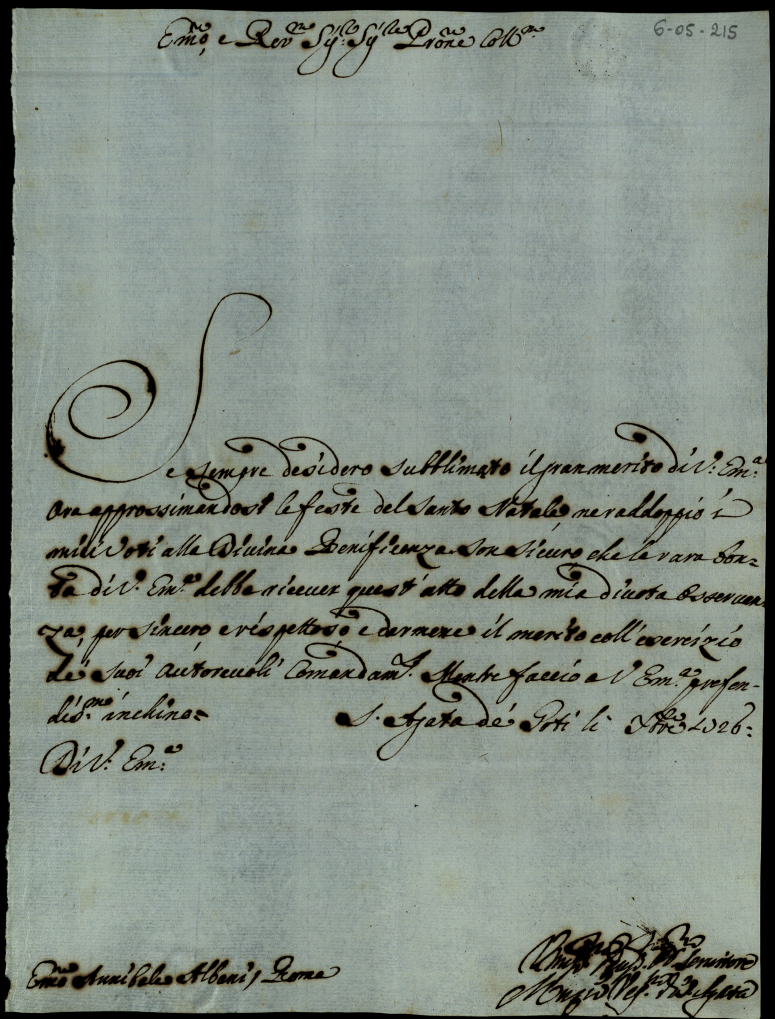 6-05-215
Em͠o, e Rev.mo Sig.r Sig.r P͠rone Coll.mo
Se sempre desidero subblimato il gran merito di V. Em.a
Ora approssimandosi le feste del Santo Natale ne raddoppio i
miei voti alla Divina Benificenza. Son sicuro che la rara bon=
tà di V. Em.a debba ricever quest'atto della mia divota osservan
za, per sincero e rispettoso, e darmene il merito coll'esercizio
de' suoi autorevoli Comandam.ti Mentre faccio a V. Em.a profon=
dis.mo inchino=
S. Agata de' Goti li Xbre 1726=
Di V. Em.a
Em͠o Annibale Albani, Roma
Servitore
Muzio Ves.o di S. Agata